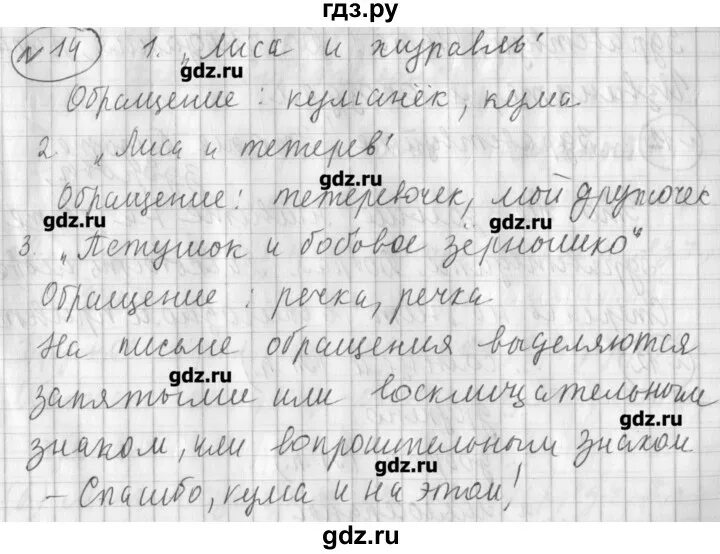 гдз.ру
№ 14 1. „Лиса и журавль"
gdz.ru
Обращение: куманёк, кума
gdz.ru
2. „Лиса и тетерев"
gdz.ru
Обращение: тетеревочек, мой дружочек
gdz.ru gdz.ru
3. „Петушок и бобовое зёрнышко"
Обращение: речка, речка
gdz.ru
На письме обращения выделяются
gdz.ru
запятыми или восклицательным
gdz.ru
знаком, или вопросительным знаком
gdz.ru
– Спасибо, кума и на этом!
gdz.ru